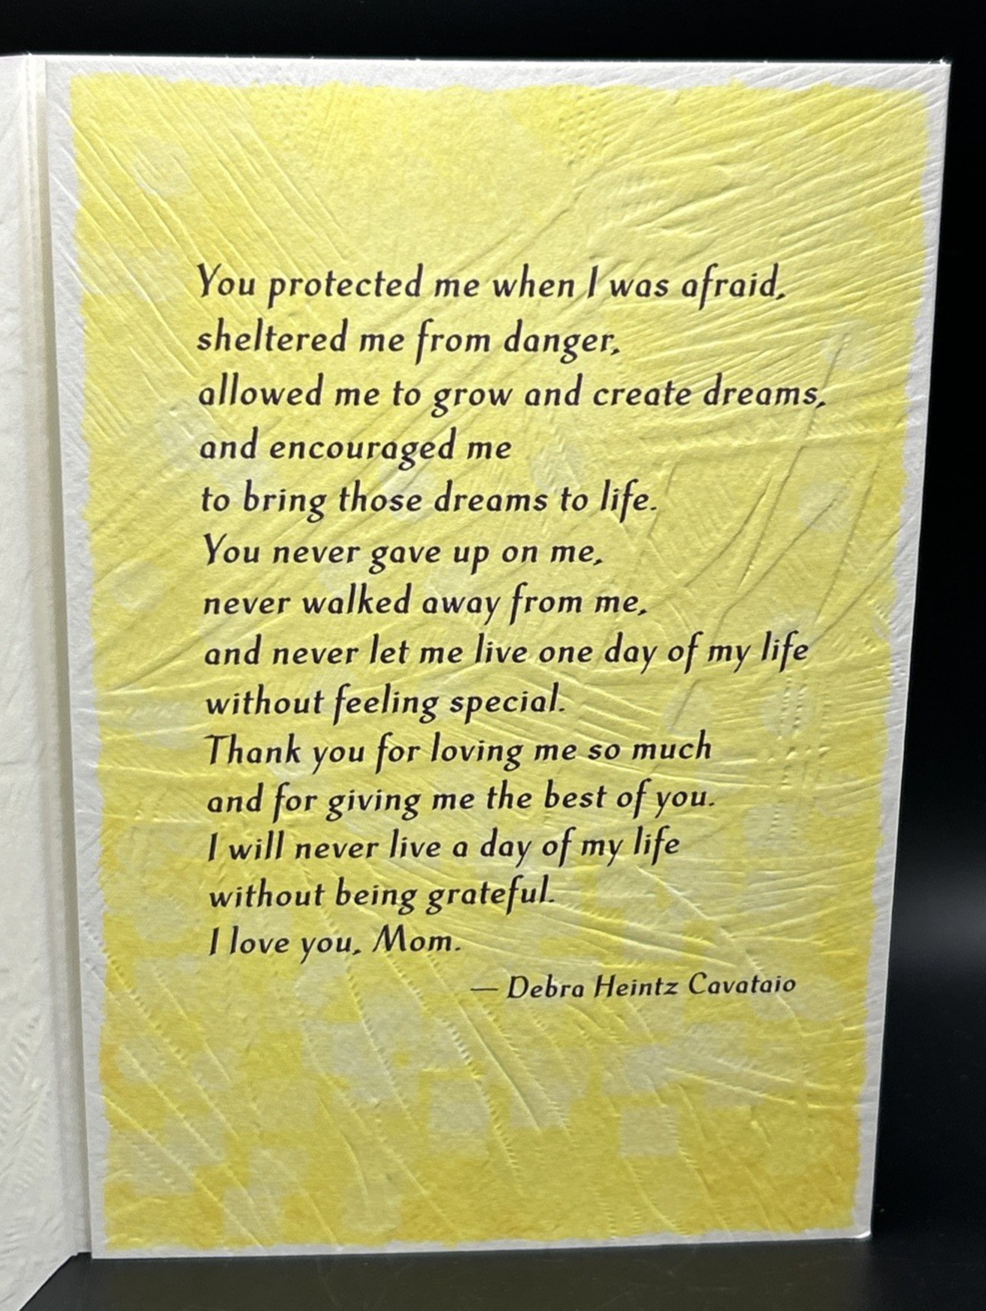 You protected me when I was afraid,
sheltered me from danger,
allowed me to grow and create dreams,
and encouraged me
to bring those dreams to life.
You never gave up on me,
never walked away from me,
and never let me live one day of my life
without feeling special.
Thank you for loving me so much
and for giving me the best of you.
I will never live a day of my life
without being grateful.
I love you, Mom.
— Debra Heintz Cavataio